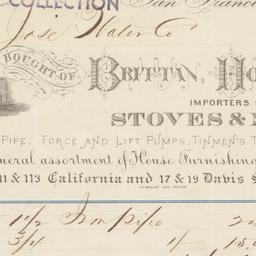 COLLECTION
San Francisc
Jose Water Co
BOUGHT OF
BRITTAN, HO
IMPORTERS
STOVES &
PIPE, FORCE AND LIFT PUMPS, TINMEN'S T
neral assortment of House Furnishing
11 & 113 California and 17 & 19 Davis S
1 1/2 Iron pipe 2
3/4 " 15